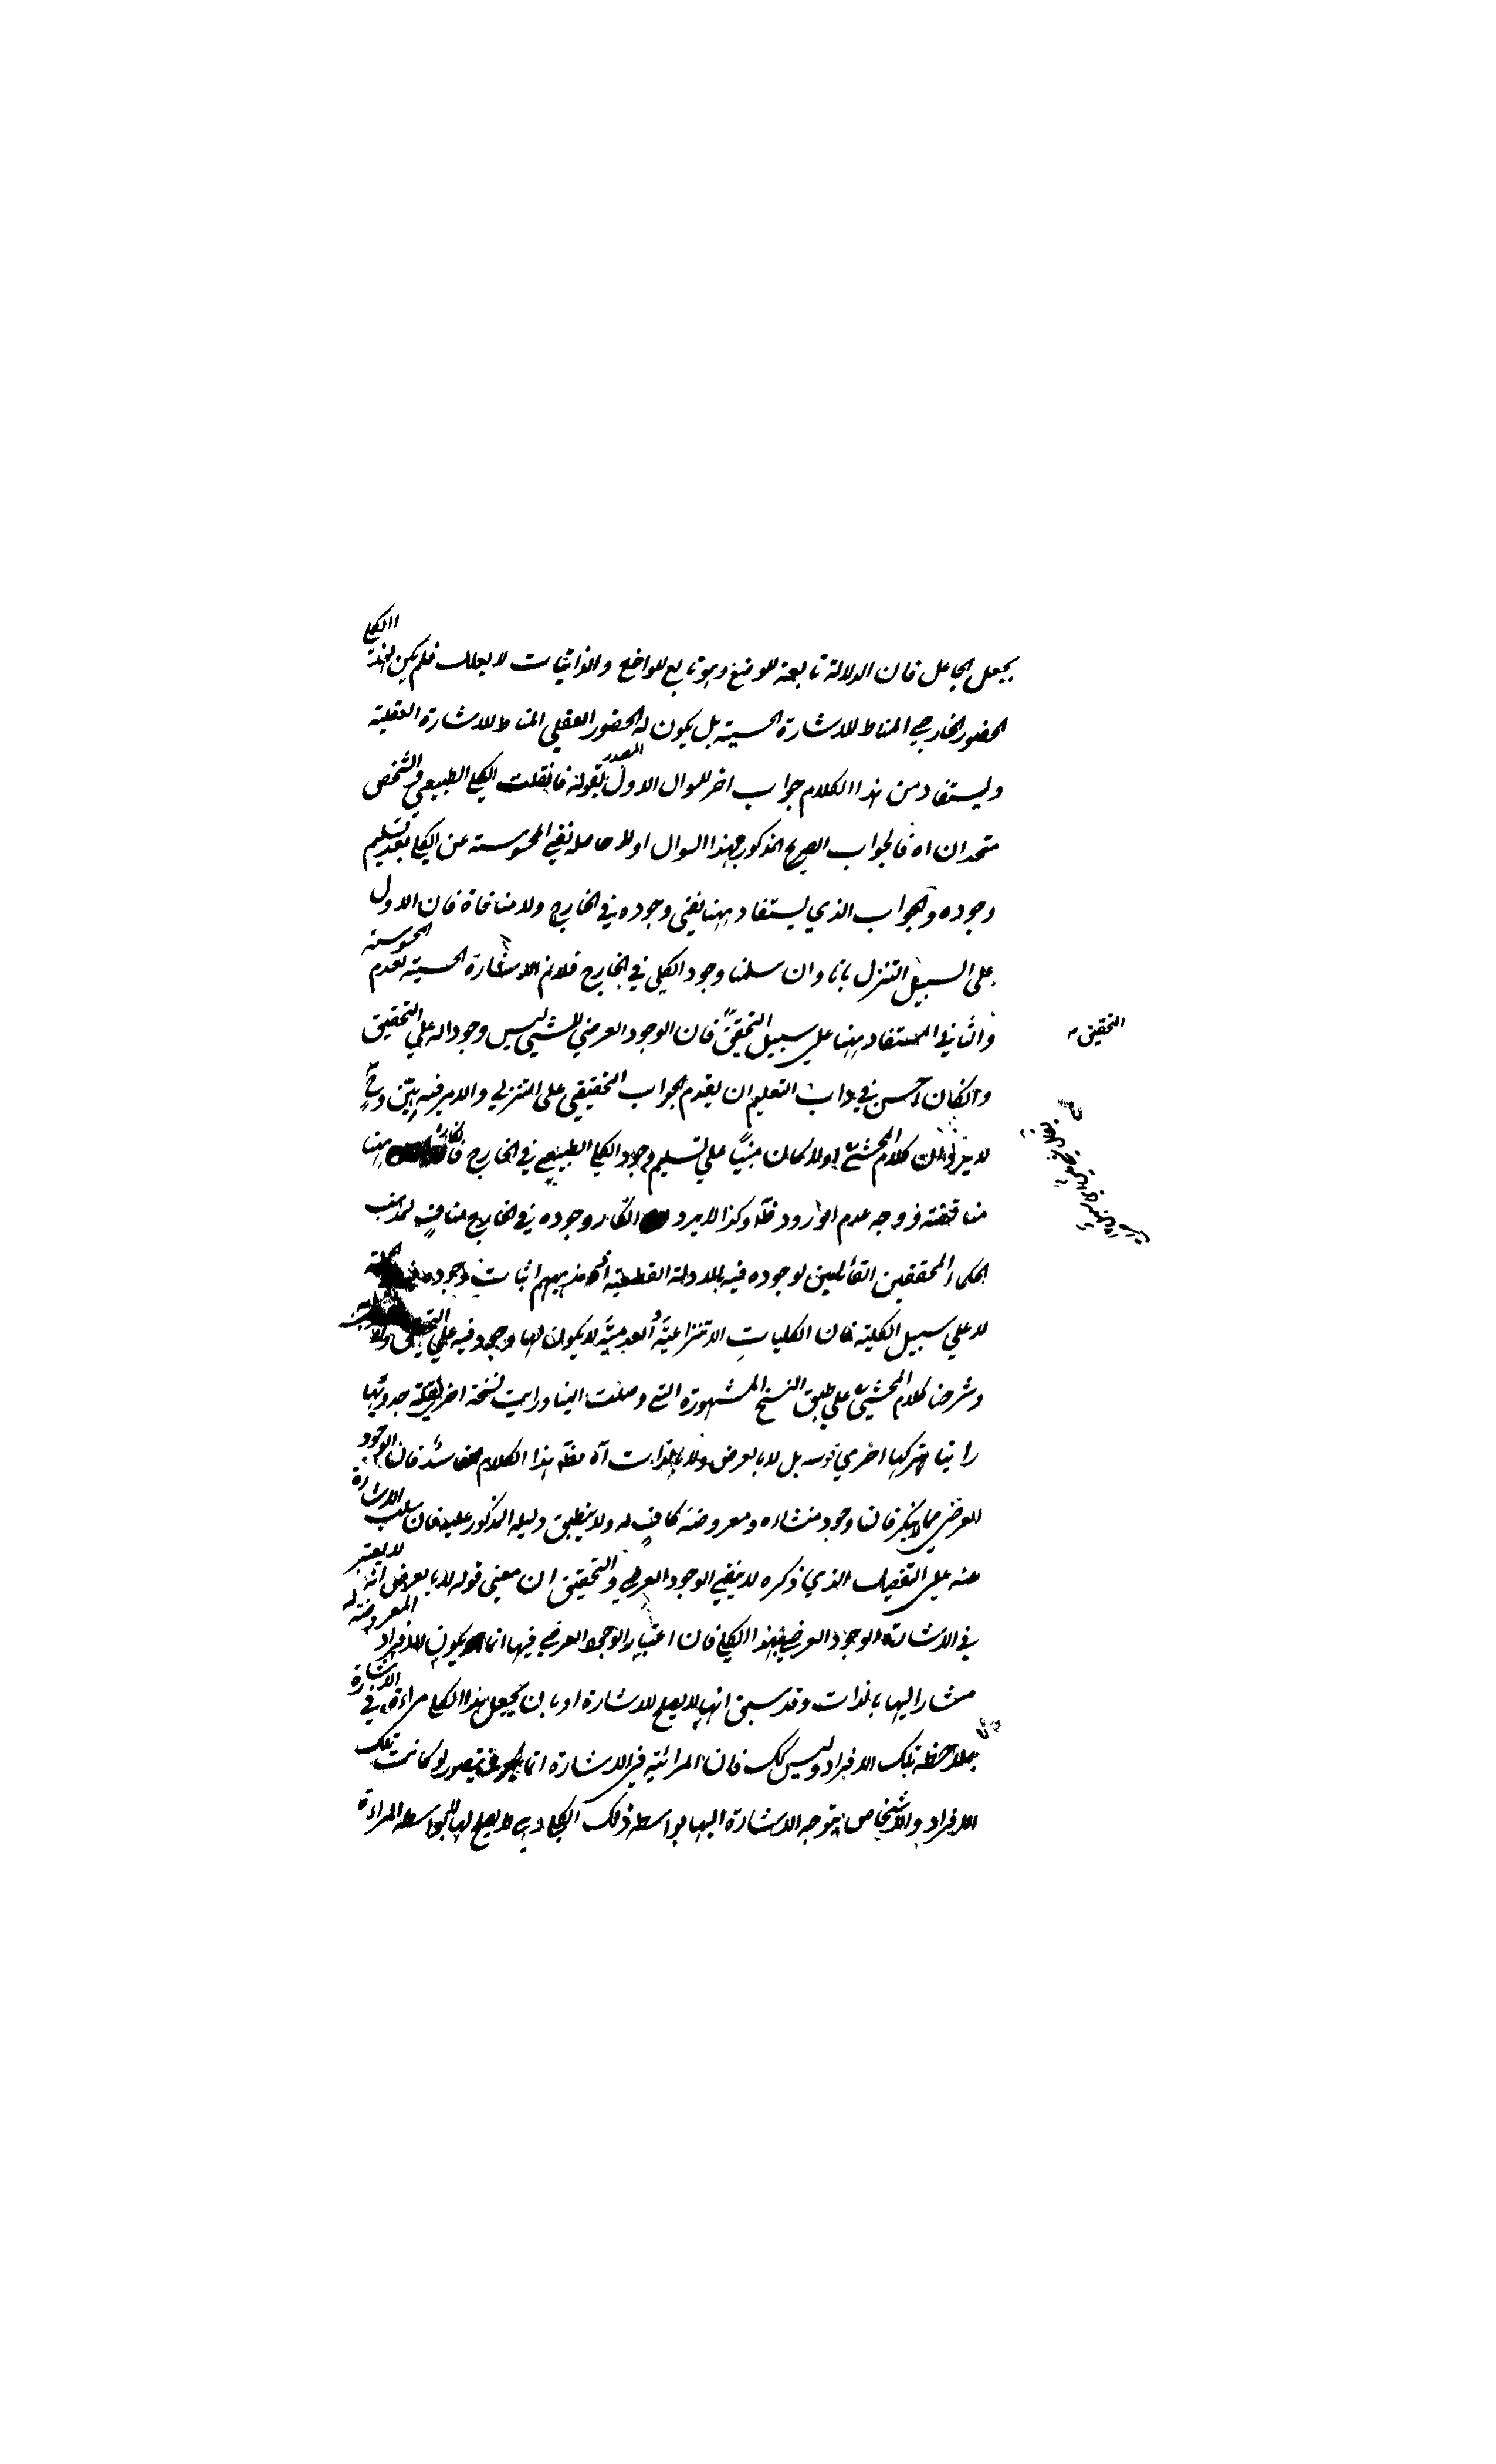 بجعل الجاعل فان الدلالة تابعة للوضع وهو تابع للواضع والذاتيات لا يعلل فلم يكن لهذا الكلي
الحضور الخارجي المناط للاشارة الحسية بل يكون له الحضور العقلي المناط للاشارة العقلية
وليستفاد من هذا الكلام جواب اخر للسوال الاول المصدر بقوله فانقلت الكلي الطبيعي والشخص
متحدان اه فالجواب الصريح المذكور لهذا السوال اولا حاصله نفي المحسوسية عن الكلي بعد تسليم
وجوده والجواب الذي يستفاد ههنا نفي وجوده في الخارج ولا منافاة فان الاول
على السبيل التنزل بانا وان سلمنا وجود الكلي في الخارج فلانم الاشارة الحسية لعدم المحسوسية
والثاني المستفاد ههنا على سبيل التحقيق فان الوجود العرضي للشيء ليس وجودا له على التحقيق
التحقيق
وانكان احسن في داب التعليم ان يقدم الجواب التحقيقي على التنزلي والامر فيه بيّن وح
لا يرد ان كلام المحشي اولا كان مبنيا على تسليم وجود الكلي الطبيعي في الخارج فانكاره ههنا
مناقضة ووجه عدم الورود ظ وكذا لا يرد انكار وجوده في الخارج مناف لمذهب
الحكماء المحققين القائلين لوجوده فيه بالادلة القطعية اذ مذهبهم اثبات وجوده في الجملة
لا على سبيل الكلية فان الكليات الانتزاعية والعدمية لا يكون لها وجود فيه على التحقيق
وشرحنا كلام المحشي على طبق النسخ المشهورة التي وصلت الينا ورايت نسخة اخرى
راينا تركها احرى قوله بل لا بالعرض ولا بالذات اه ظ هذا الكلام فاسد فان الوجود
العرضي مما لا ينكر فان وجود منشاءه ومعروضه كاف له ولا ينطبق دليله المذكور عليه فان سلب الاشارة
عنه على التفصيل الذي ذكره لا ينفي الوجود العرضي والتحقيق ان معنى قوله لا بالعرض انه لا يعتبر
في الاشارة الوجود العرضي لهذا الكلي فان اعتبار الوجود العرضي فيها انما يكون للافراد المعروضة له
مشارا اليها بالذات وقد سبق انها لا يصلح للاشارة او بان يجعل هذا الكلي مراءة في الاشارة
بملاحظة تلك الافراد وليس كك فان المرائية في الاشارة انما يتصور لو كانت تلك
الافراد والاشخاص يتوجه الاشارة اليها بواسطة ذلك الكلي وهي لا يصلح لها بواسطة المراءة